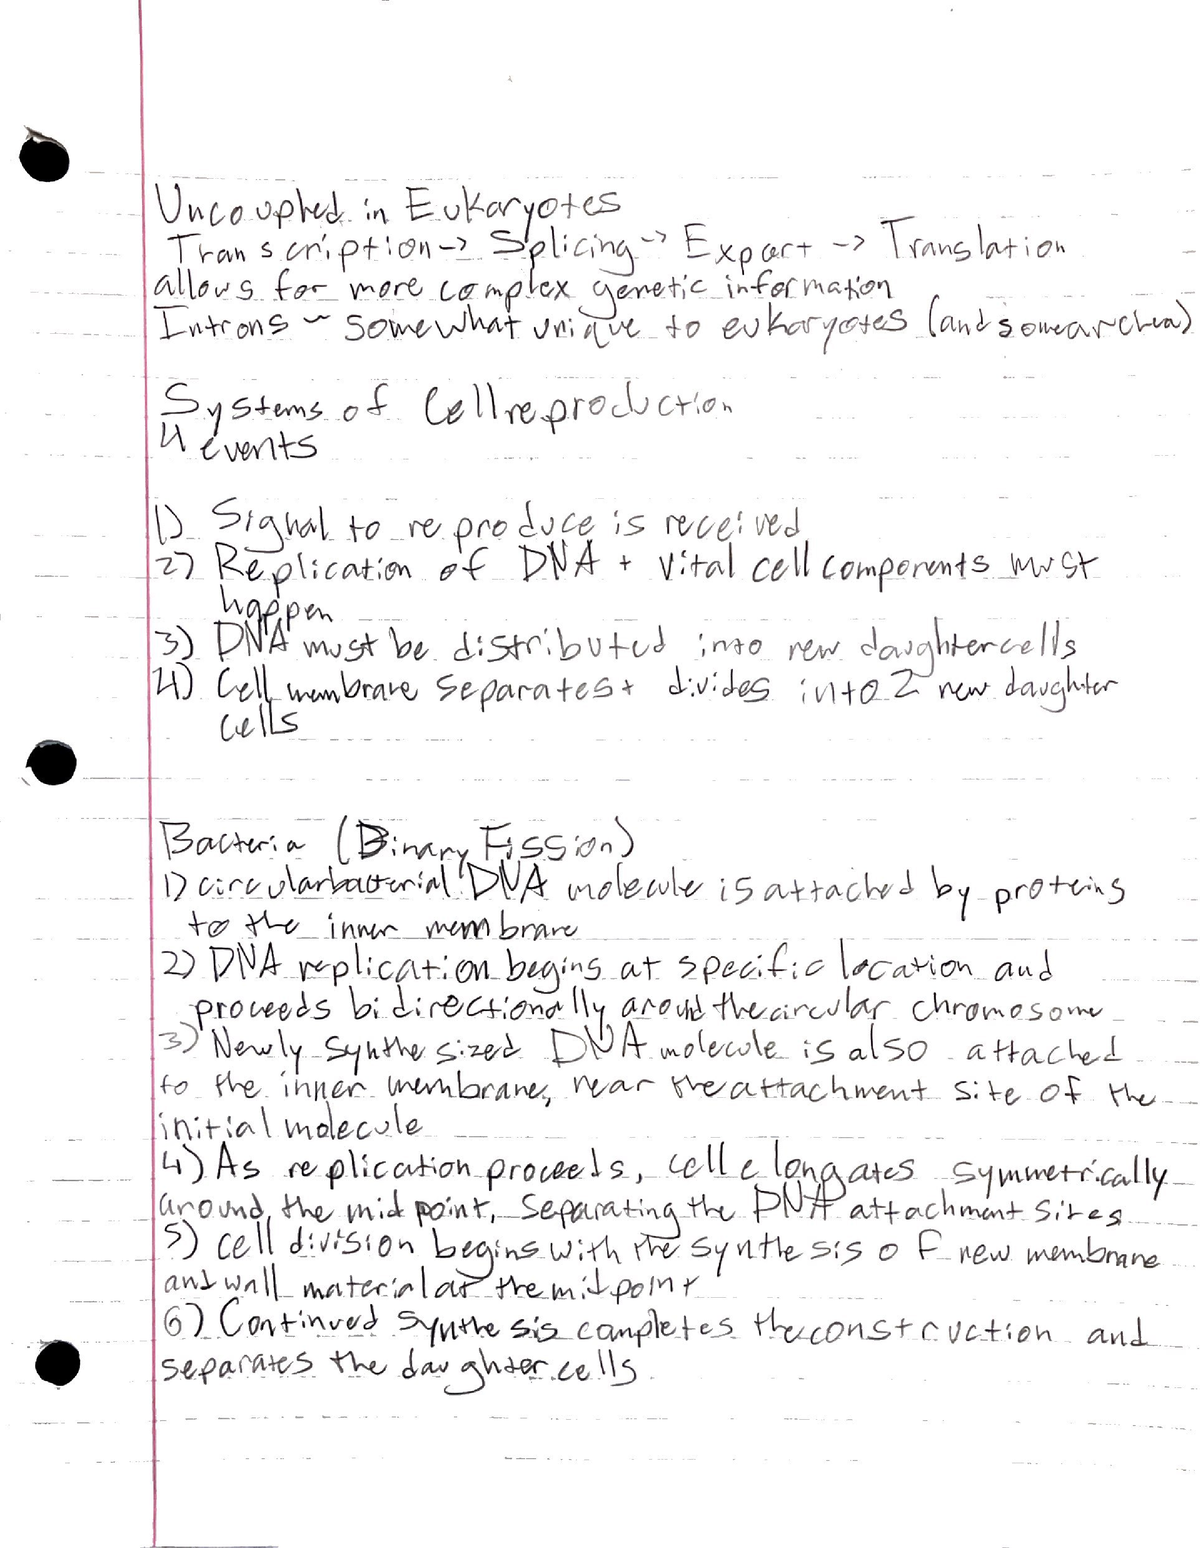 Uncoupled in Eukaryotes
Transcription -> Splicing -> Export -> Translation
allows for more complex genetic information
Introns ~ somewhat unique to eukaryotes (and some archea)
Systems of Cell reproduction
4 events
1) Signal to reproduce is received
2) Replication of DNA + vital cell components must
happen
3) DNA must be distributed into new daughter cells
4) Cell membrane separates + divides into 2 new daughter
cells
Bacteria (Binary Fission)
1) circular bacterial DNA molecule is attached by proteins
to the inner membrane
2) DNA replication begins at specific location and
proceeds bidirectionally around the circular chromosome
3) Newly synthesized DNA molecule is also attached
to the inner membrane, near the attachment site of the
initial molecule
4) As replication proceeds, cell elongates symmetrically
around the midpoint, separating the DNA attachment sites
5) cell division begins with the synthesis of new membrane
and wall material at the midpoint
6) Continued synthesis completes the construction and
separates the daughter cells